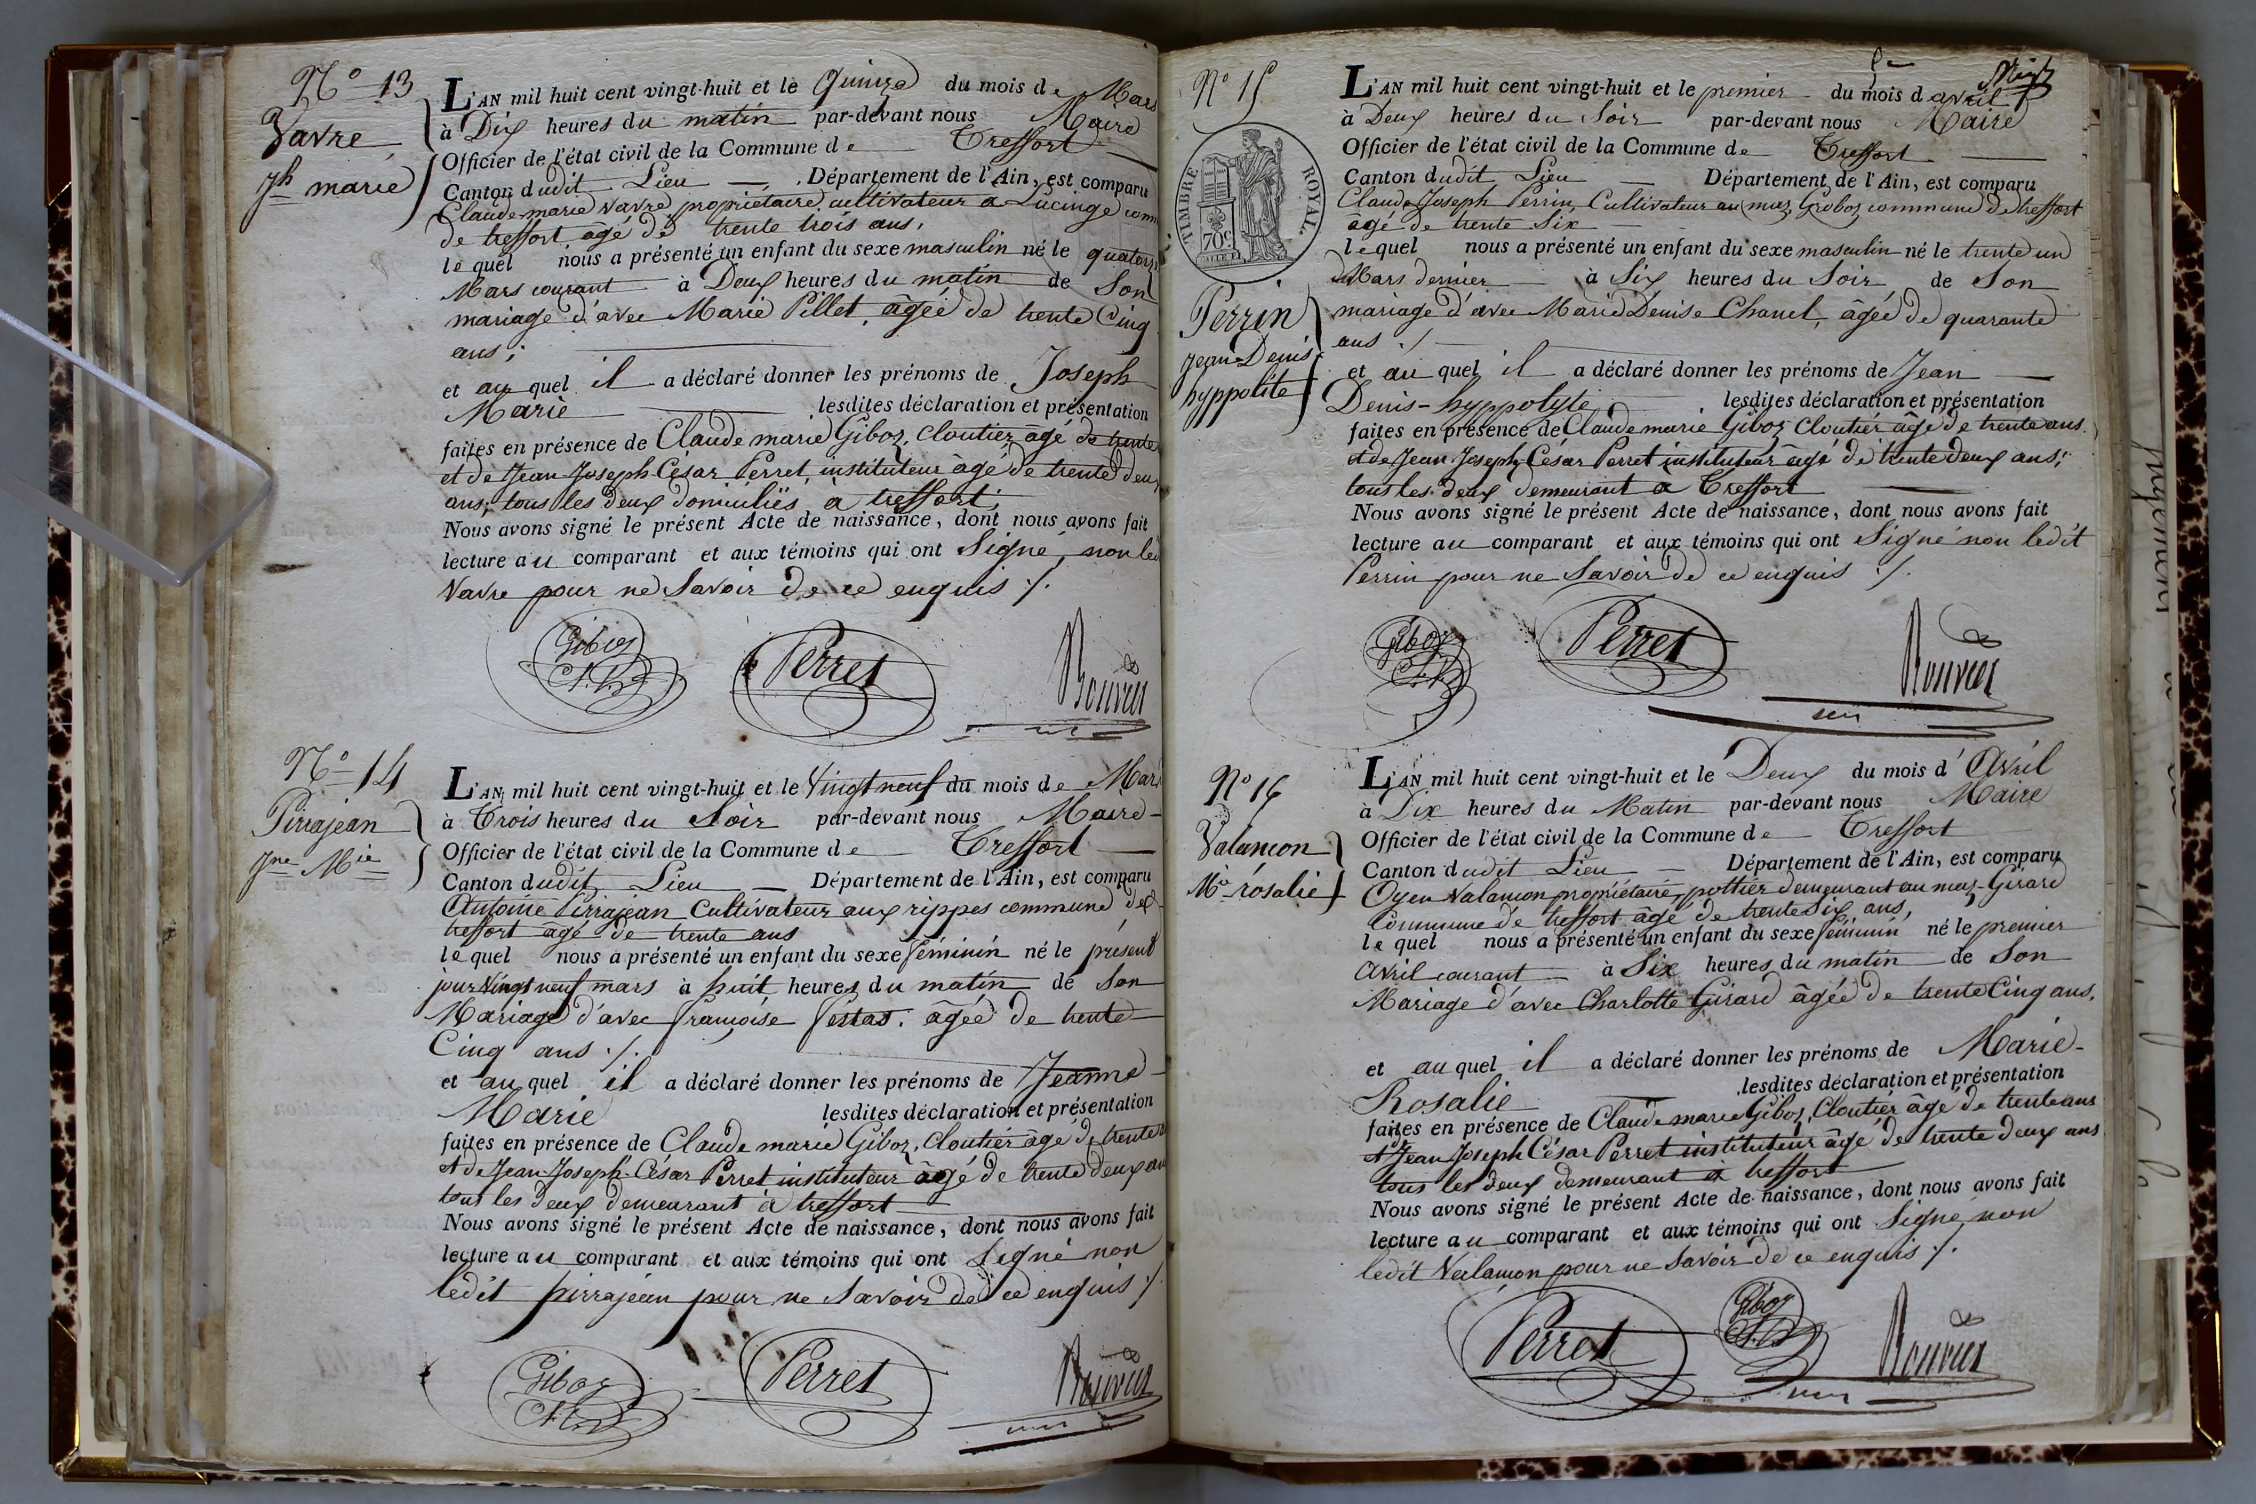 N.o 13
Vavre
jh marie
L'AN mil huit cent vingt-huit et le Quinze du mois de Mars
à Dix heures du matin par-devant nous Maire
Officier de l'état civil de la Commune de Treffort
Canton dudit Lieu Département de l'Ain, est comparu
Claude marie Vavre propriétaire cultivateur a Lucinge
de treffort agé de trente trois ans,
lequel nous a présenté un enfant du sexe masculin né le quatorze
Mars courant à Deux heures du matin de Son
mariage d'avec Marie Pillet, âgée de trente Cinq
ans;
et au quel il a déclaré donner les prénoms de Joseph
Marie lesdites déclaration et présentation
faites en présence de Claude marie Giboz, cloutier, âgé de trente
et de Jean-Joseph-César Perret, instituteur âgé de trente deux
ans; tous les deux domiciliés à treffort;
Nous avons signé le présent Acte de naissance, dont nous avons fait
lecture au comparant et aux témoins qui ont Signé, non led
Vavre pour ne Savoir de ce enquis ./.
Giboz
Perret
Bouvier
N.o 14
Pirrajean
Jne Mie
L'AN mil huit cent vingt-huit et le Vingt neuf du mois de Mars
à Trois heures du Soir par-devant nous Maire
Officier de l'état civil de la Commune de Treffort
Canton dudit Lieu Département de l'Ain, est comparu
Antoine Pirrajean Cultivateur aux rippes commune de
treffort âgé de trente ans
lequel nous a présenté un enfant du sexe féminin né le présent
jour Vingt neuf mars à huit heures du matin de Son
Mariage d'avec françoise âgée de trente
Cinq ans ./.
et au quel il a déclaré donner les prénoms de Jeanne
Marie lesdites déclaration et présentation
faites en présence de Claude marie Giboz, Cloutier âgé de trente
et de Jean-Joseph-César Perret instituteur âgé de trente deux ans
tous les deux demeurant à treffort
Nous avons signé le présent Acte de naissance, dont nous avons fait
lecture au comparant et aux témoins qui ont Signé non
ledit pirrajean pour ne Savoir de ce enquis ./.
Giboz
Perret
Bouvier
N.o 15
TIMBRE ROYAL
70c
Perrin
Jean-Denis
hyppolite
L'AN mil huit cent vingt-huit et le premier du mois d avril
à Deux heures du Soir par-devant nous Maire
Officier de l'état civil de la Commune de Treffort
Canton dudit Lieu Département de l'Ain, est comparu
Claude Joseph Perrin, Cultivateur au maz Groboz commune de treffort
âgé de trente Six
lequel nous a présenté un enfant du sexe masculin né le trente un
Mars dernier à Six heures du Soir de Son
mariage d'avec Marie Denise Chanel, âgée de quarante
ans ./.
et au quel il a déclaré donner les prénoms de Jean
Denis-hyppolyte lesdites déclaration et présentation
faites en présence de Claude marie Giboz Cloutier âgé de trente ans
et de Jean Joseph-César Perret instituteur âgé de trente deux ans;
tous les deux demeurant à Treffort
Nous avons signé le présent Acte de naissance, dont nous avons fait
lecture au comparant et aux témoins qui ont Signé non ledit
Perrin pour ne Savoir de ce enquis ./.
Giboz
Perret
Bouvier
N.o 16
Valançon
Mie rosalie
L'AN mil huit cent vingt-huit et le Deux du mois d' Avril
à Dix heures du Matin par-devant nous Maire
Officier de l'état civil de la Commune de Treffort
Canton dudit Lieu Département de l'Ain, est comparu
Oyen Valançon propriétaire, pottier demeurant au maz-Girard
Commune de treffort âgé de trente Six ans,
lequel nous a présenté un enfant du sexe féminin né le premier
avril courant à Six heures du matin de Son
Mariage d'avec Charlotte Girard âgée de trente Cinq ans,
et au quel il a déclaré donner les prénoms de Marie-
Rosalie lesdites déclaration et présentation
faites en présence de Claude marie Giboz, Cloutier âgé de trente ans
et de Jean Joseph César Perret instituteur âgé de trente deux ans
tous les deux demeurant à treffort
Nous avons signé le présent Acte de naissance, dont nous avons fait
lecture au comparant et aux témoins qui ont Signé non
ledit Valançon pour ne Savoir de ce enquis ./.
Perret
Giboz
Bouvier